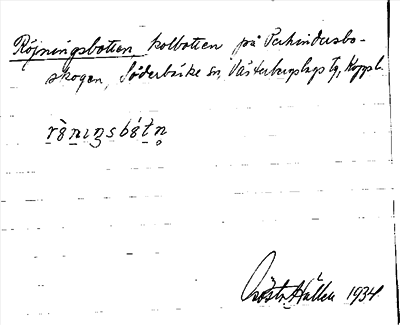 Röjningsbotten, kolbotten på Perhindersbo-
skogen, Söderbärke sn, Västerbergslags tg, Koppb.
Gösta Hallén 1934